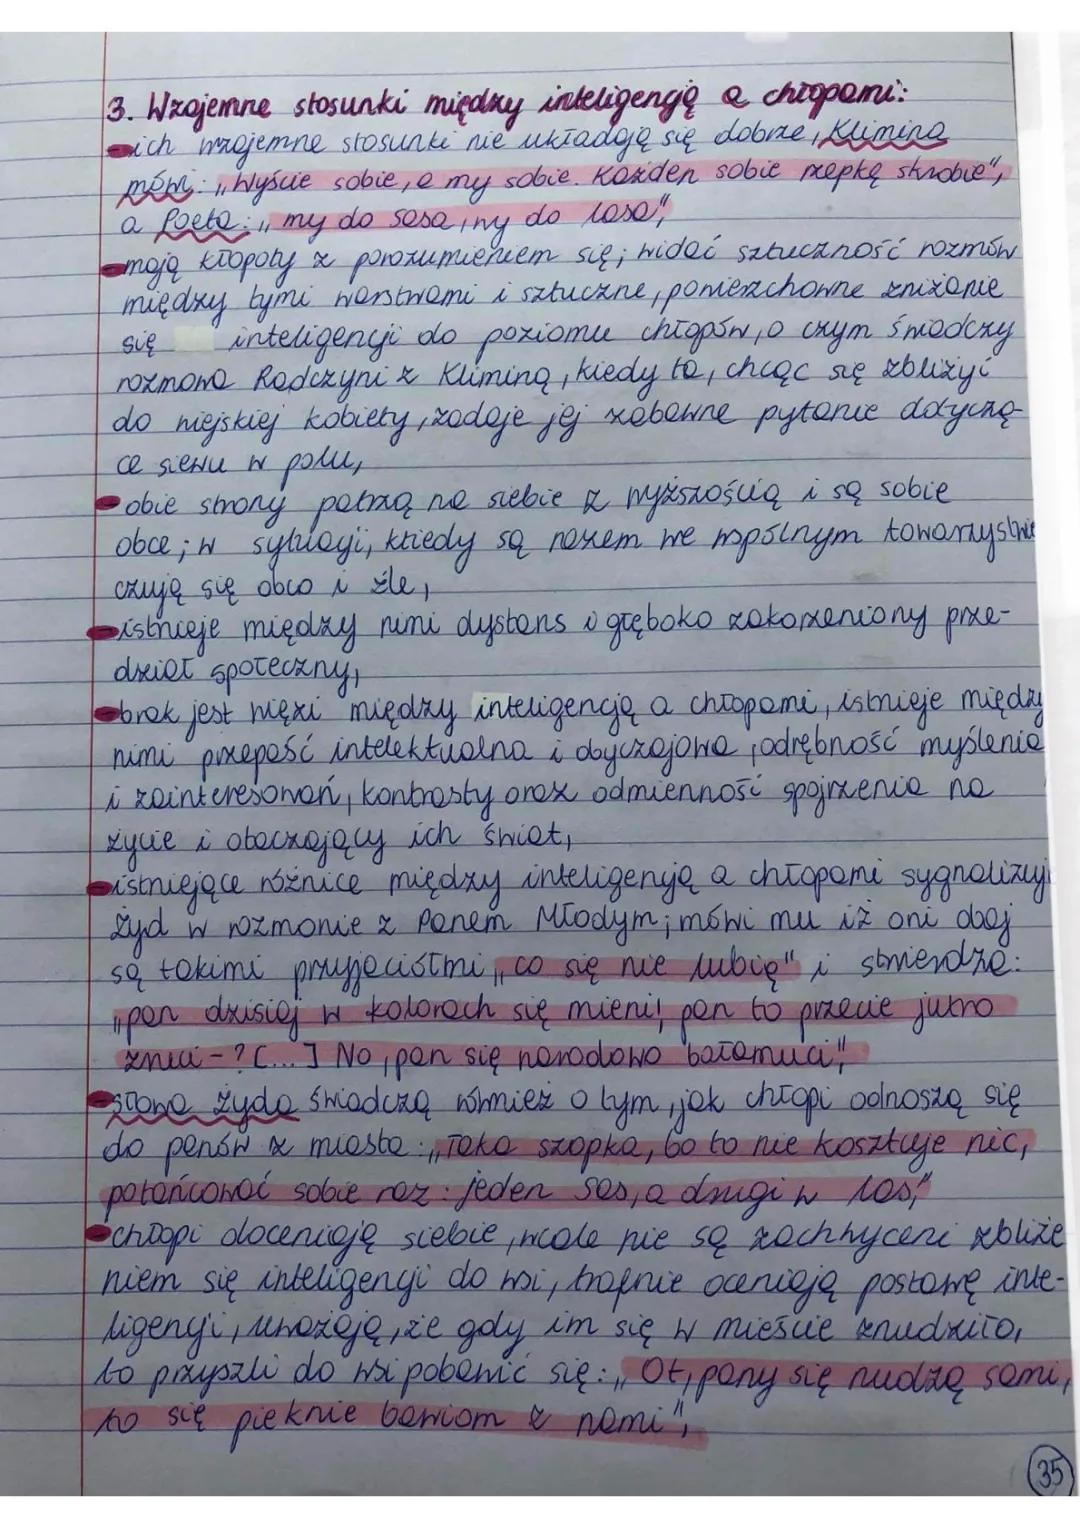 3. Wzajemne stosunki między inteligencją a chłopami:
- ich wzajemne stosunki nie układają się dobrze, Klimina
mówi: „Wyście sobie, a my sobie. Każden sobie rzepkę skrobie",
a Poeta: „my do Sasa, wy do lasa",
- mają kłopoty z porozumieniem się; widać sztuczność rozmów
między tymi warstwami i sztuczne, powierzchowne zniżanie
się inteligencji do poziomu chłopów, o czym świadczy
rozmowa Radczyni z Kliminą, kiedy ta, chcąc się zbliżyć
do wiejskiej kobiety, zadaje jej zabawne pytanie dotyczą-
ce siewu w polu,
- obie strony patrzą na siebie z wyższością i są sobie
obce; w sytuacji, kiedy są razem we wspólnym towarzystwie
czują się obco i źle,
- istnieje między nimi dystans i głęboko zakorzeniony prze-
dział społeczny,
- brak jest więzi między inteligencją a chłopami, istnieje między
nimi przepaść intelektualna i obyczajowa, odrębność myślenia
i zainteresowań, kontrasty oraz odmienność spojrzenia na
życie i otaczający ich świat,
- istniejące różnice między inteligencją a chłopami sygnalizuje
Żyd w rozmowie z Panem Młodym; mówi mu iż oni obaj
są takimi przyjaciółmi „co się nie lubią" i stwierdza:
„pan dzisiaj w kolorach się mieni; pan to przecie jutro
zruci - ? [...] No, pan się narodowo bałamuci",
- słowa Żyda świadczą również o tym, jak chłopi odnoszą się
do panów z miasta: „Taka szopka, bo to nie kosztuje nic,
potańcować sobie raz: jeden Sas, a drugi w las",
- chłopi doceniają siebie, wcale nie są zachwyceni zbliże
niem się inteligencji do wsi, trafnie oceniają postawę inte-
ligencji, uważają, że gdy im się w mieście znudziło,
to przyszli do wsi pobawić się: „Ot, pany się nudzą sami,
to się pieknie bawiom z nami",
35